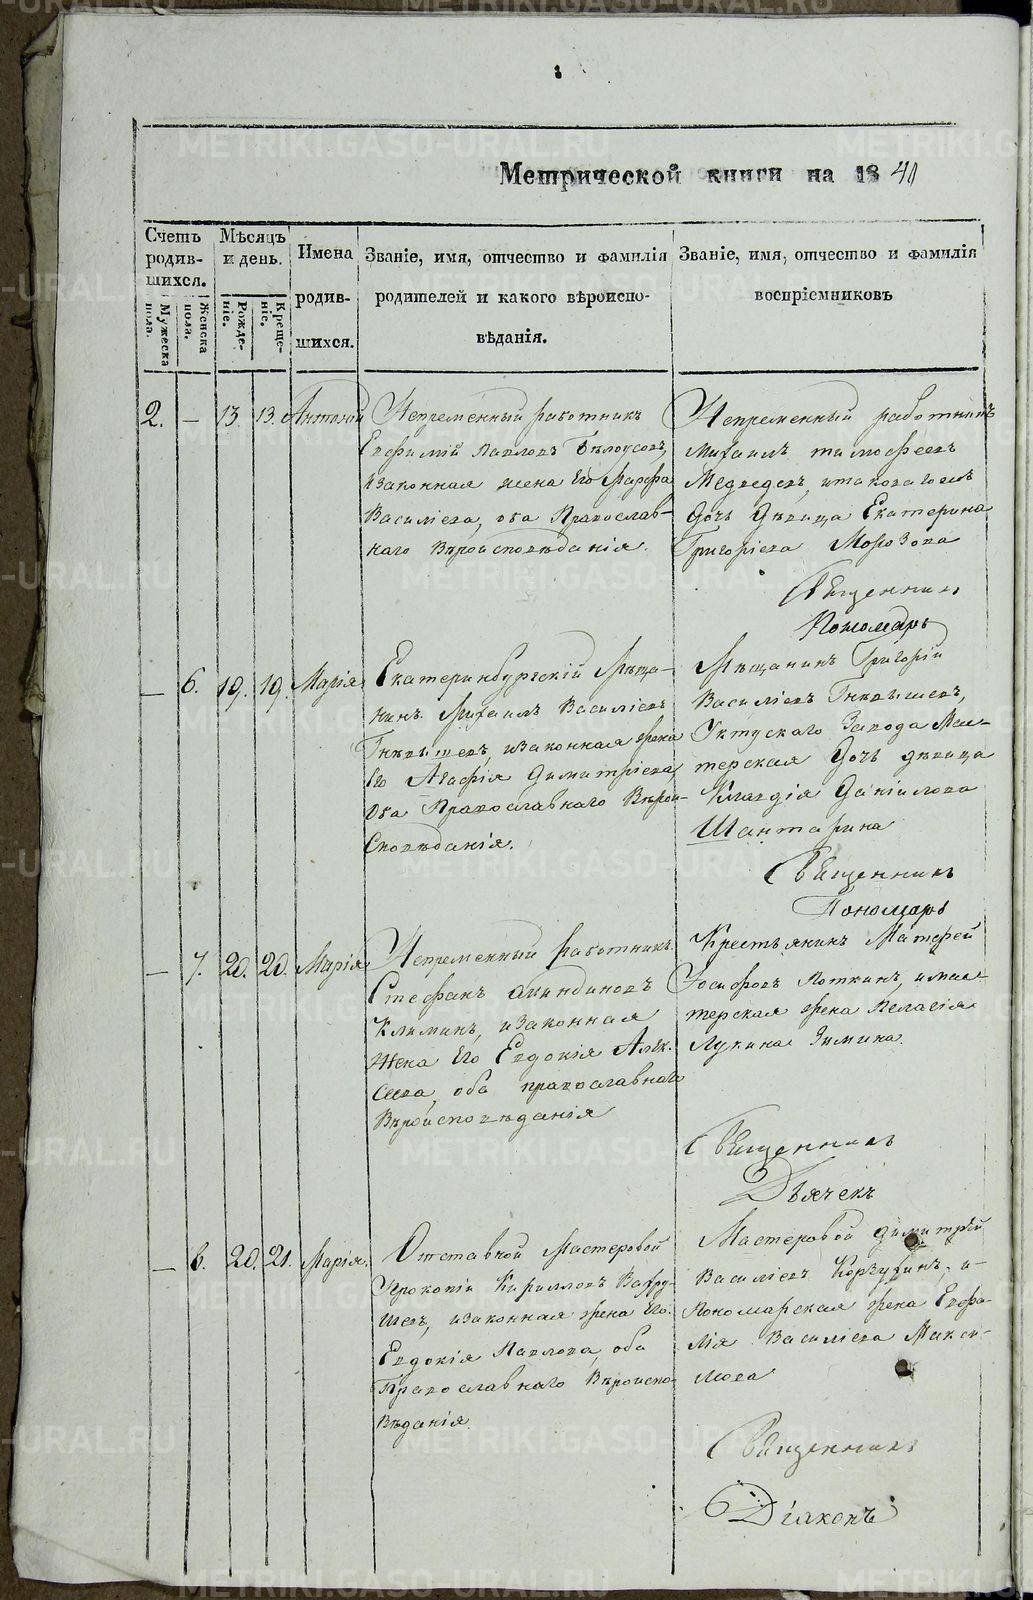 Метрической книги на 1840
Счетъ родив-шихся.
Мужеска пола.
Женска пола.
Мѣсяцъ и день.
Рожде-ніе.
Креще-ніе.
Имена родив-шихся.
Званіе, имя, отчество и фамилія
родителей и какого вѣроиспо-
вѣданія.
Званіе, имя, отчество и фамилія
воспріемниковъ
2. — 13. 13. Антоній
Непременный работникъ
Евфимій Павловъ Бѣлоусовъ,
изаконная жена его Марфа
Васильева, оба Православ-
наго Вѣроисповѣданія.
Непременный работникъ
Михаилъ тимофеевъ
Медведевъ, итаковагоже
дочь дѣвица Екатерина
Григорьева Морозова
Священникъ
Пономарь
— 6. 19. 19. Марія
Екатеринбургскій Мѣща-
нинъ Михаилъ Васильевъ
Гнѣвышевъ, изаконная жена
его Агафія Димитріева,
Оба Православнаго Вѣрои-
споведанія.
Мѣщанинъ Григорій
Васильевъ Гнѣвышевъ,
Уктускаго Завода Мас-
терская дочь дѣвица
Клавдія Даніилова
Шантарина
Священникъ
Пономарь
— 7. 20. 20. Марія
Непременный работникъ
Стефанъ акиндиновъ
Климинъ, изаконная
Жена Его Евдокія Алек-
сеева, оба православнаго
Вѣроисповѣданія
Крестьянинъ Матфей
Іосифовъ Поткинъ, имас-
терская жена Пелагія
Лукина Зимина.
Священникъ
Дьячекъ
— 8. 20. 21. Марія.
Отставной Мастеровой
Прокопій Кирилловъ Вахру-
шевъ, изаконная жена Его
Евдокія Павлова, оба
Православнаго Вѣроиспо-
вѣданія.
Мастеровой димитрій
Васильевъ Коржухинъ, и-
Пономарская жена Евфи-
мія Васильева Макси-
мова
Священникъ
Діаконъ
METRIKI.GASO-URAL.RU